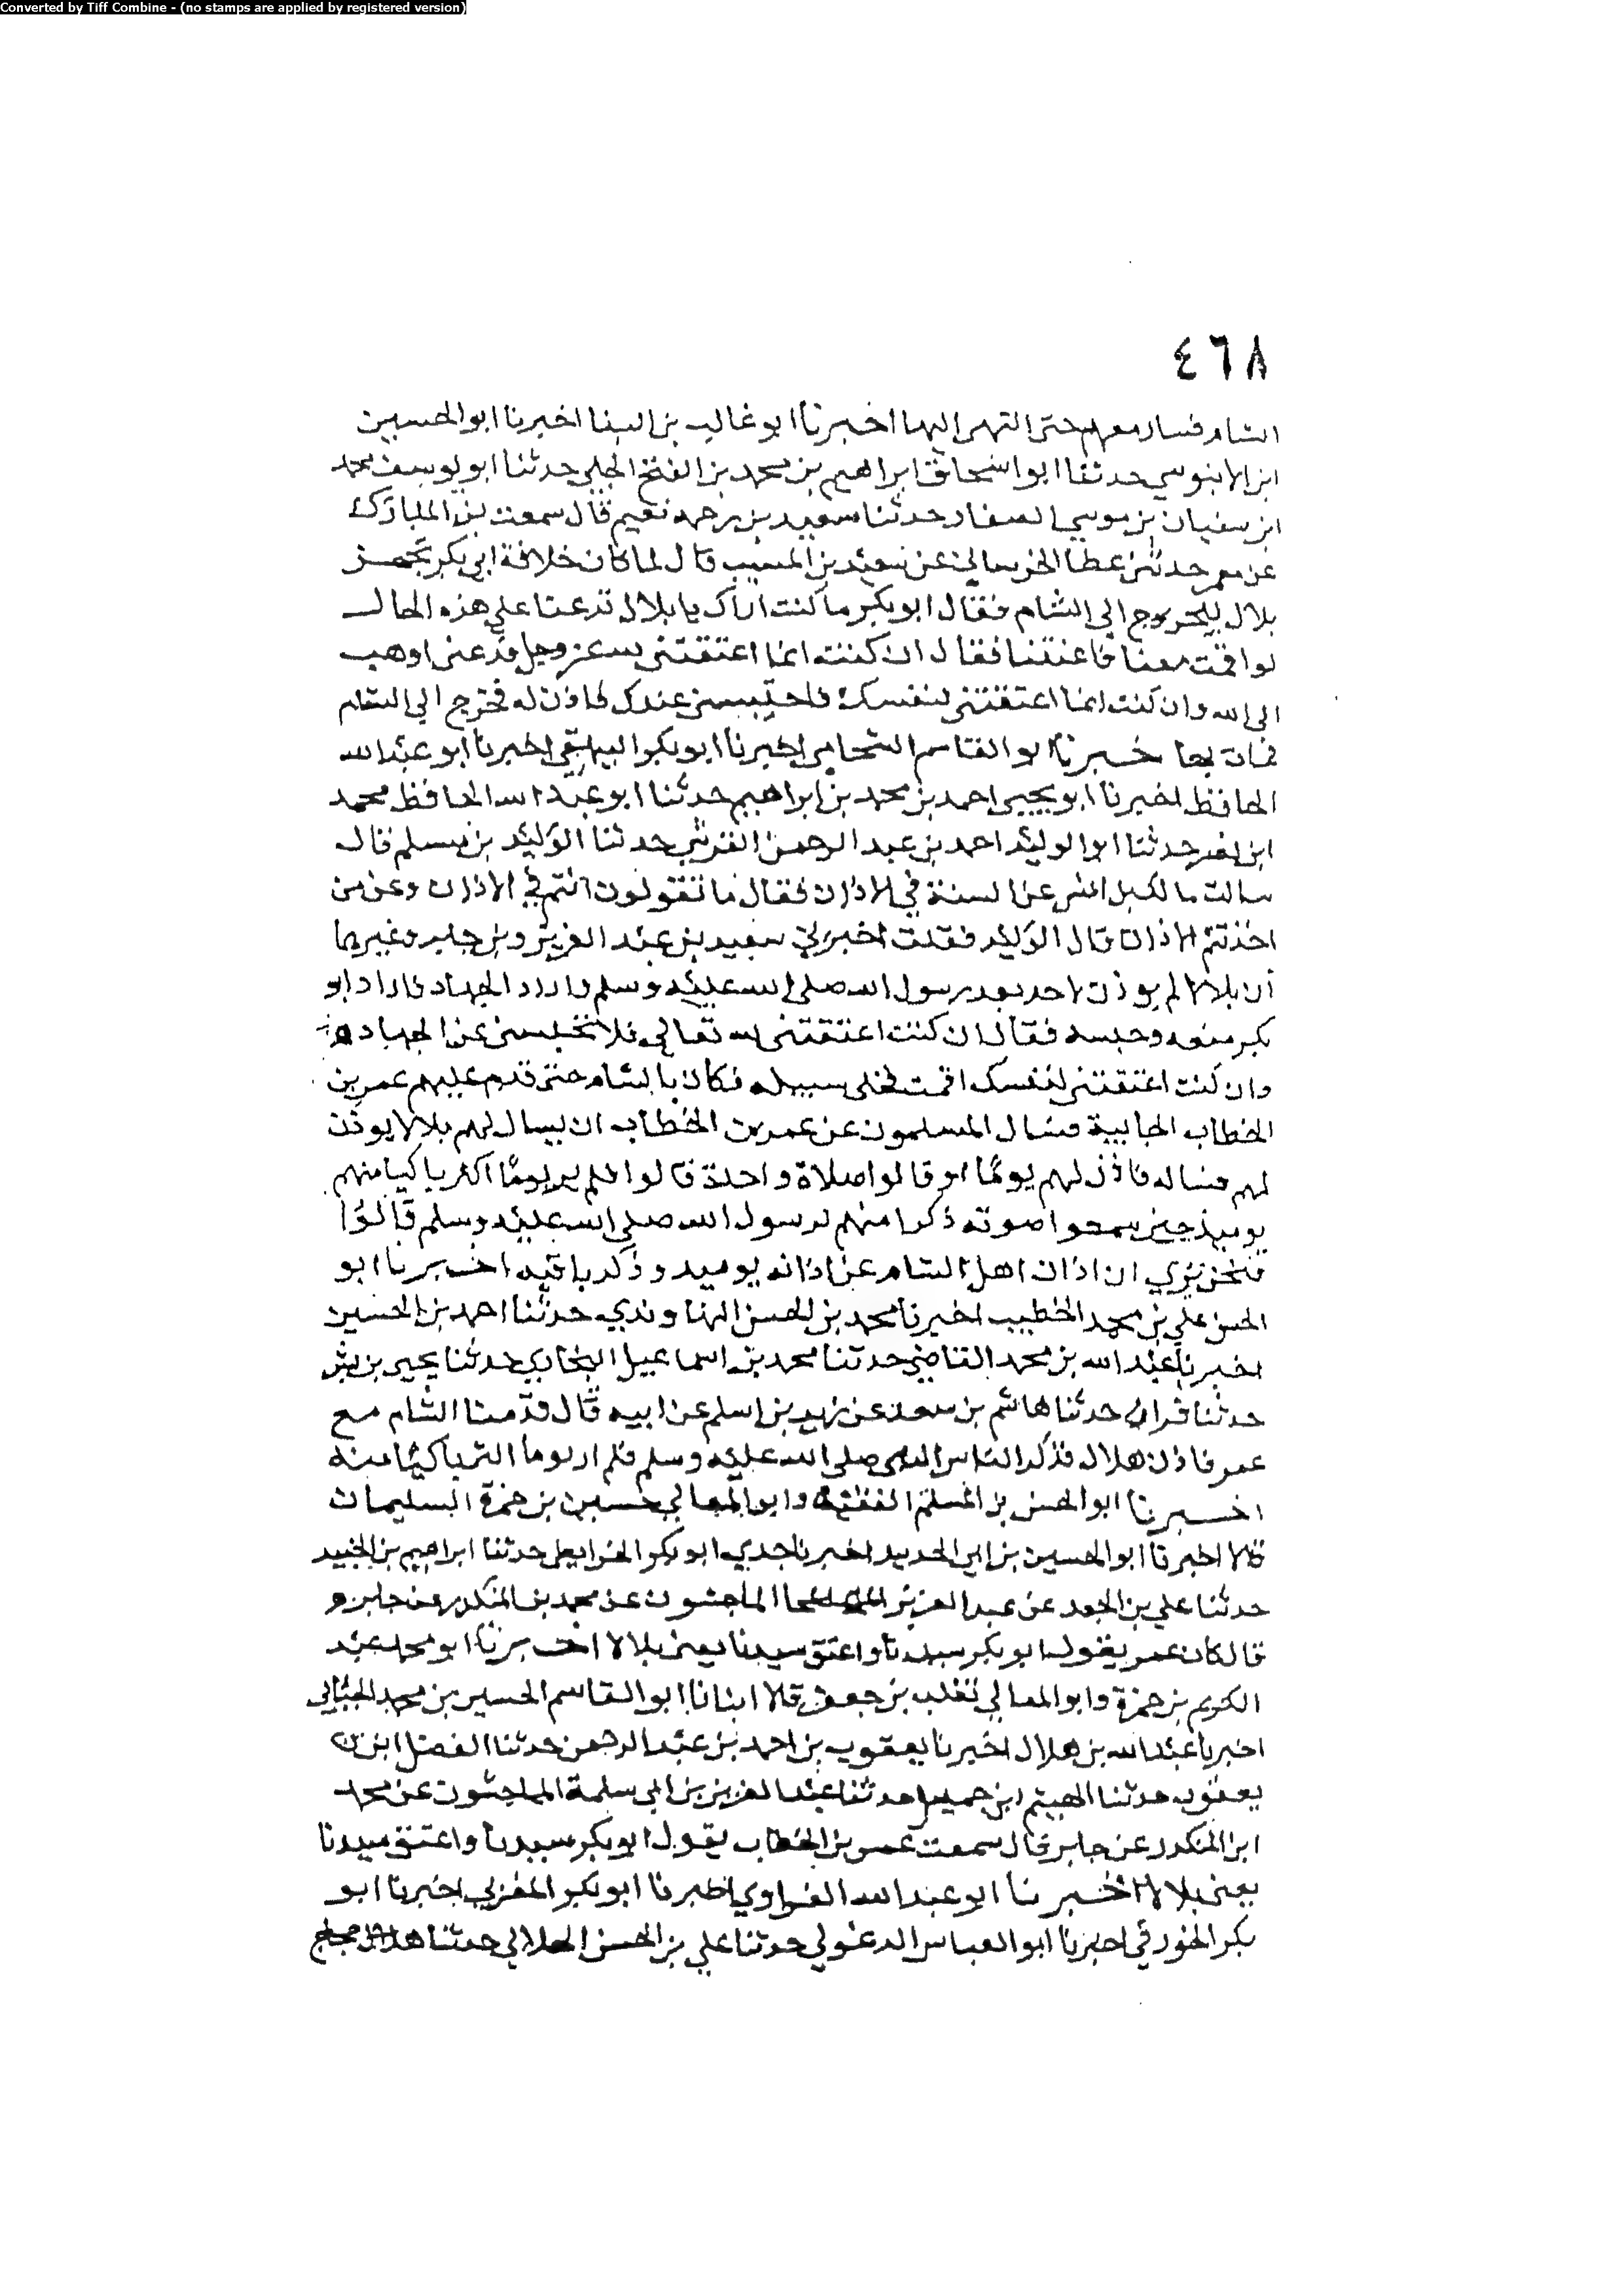 Converted by Tiff Combine - (no stamps are applied by registered version)
٤٦٨
الشام فسار معهم حتى انتهى اليها اخبرنا ابو غالب بن البنا اخبرنا ابو الحسين
ابن الابنوسي حدثنا ابو اسحاق ابراهيم بن محمد بن الفتح الجلي حدثنا ابو يوسف محمد
ابن سفيان بن موسي الصفار حدثنا سعيد بن رحمه نعيم قال سمعت بن المبارك
عن معمر حدثني عطا الخرساني عن سعيد بن المسيب قال لما كان خلافة ابي بكر تجهز
بلال للخروج الي الشام فقال ابو بكر ما كنت اراك يا بلال تدعنا علي هذه الحال
لو اقمت معنا فاعنتنا فقال ان كنت انما اعتقتني لله عز وجل فدعني اذهب
الى الله وان كنت انما اعتقتني لنفسك فاحتبسني عندك فاذن له فخرج الي الشام
فمات بها خبرنا ابو القاسم الشحامي اخبرنا ابو بكر البيهقي اخبرنا ابو عبد الله
الحافظ اخبرنا ابو يحيى احمد بن محمد بن ابراهيم حدثنا ابو عبد الله الحافظ محمد
ابن نصر حدثنا ابو الوليد احمد بن عبد الرحمن القرشي حدثنا الوليد بن مسلم قال
سالت مالك بن انس عن السنة في الاذان فقال ما تقولون انتم في الاذان وعن من
اخذتم الاذان قال الوليد فقلت اخبرني سعيد بن عبد العزيز وبن جابر وغيرهما
ان بلالا لم يوذن لاحد بعد رسول الله صلى الله عليه وسلم واراد الجهاد فاراد ابو
بكر منعه وحبسه فقال ان كنت اعتقتني لله تعالى فلا تحبسني عن الجهاد
وان كنت اعتقتني لنفسك اقمت فخلى سبيله فكان بالشام حتى قدم عليهم عمر بن
الخطاب الجابية فسال المسلمون عن عمر بن الخطاب ان يسال لهم بلالا يوذن
لهم فساله فاذن لهم يوما او قالوا صلاة واحدة قالوا فلم ير يوما اكثر باكيا منهم
يوميذ حين سمعوا صوته ذكرا منهم لرسول الله صلى الله عليه وسلم قالوا
فنحن نرى ان اذان اهل الشام عن اذانه يوميد وذكر باقيه اخبرنا ابو
الحسن علي بن محمد الخطيب اخبرنا محمد بن الحسن النهاوندي حدثنا احمد بن الحسين
اخبرنا عبد الله بن محمد القاضي حدثنا محمد بن اسماعيل البخاري حدثنا يحيى بن بشر
حدثنا قراد حدثنا هاشم بن سعد عن زيد بن اسلم عن ابيه قال قدمنا الشام مع
عمر فاذن هلال فذكر الناس النبي صلى الله عليه وسلم فلم ار يوما اكثر باكيا منه
اخبرنا ابو الحسن بن المسلم الفقيه وابو المعالي حسين بن حمزة السليمان
قالا اخبرنا ابو الحسين بن ابي الحديد اخبرنا جدي ابو بكر الخرايطي حدثنا ابراهيم بن الجنيد
حدثنا علي بن الجعد عن عبد العزيز الماجشون عن محمد بن المنكدر عن جابر و
قال كان عمر يقول ابو بكر سيدنا واعتق سيدنا يعني بلالا اخبرنا ابو محمد عبد
الكريم بن حمزة وابو المعالي تغلب بن جعفر قالا انبانا ابو القاسم الحسين بن محمد الحنائي
اخبرنا عبد الله بن هلال اخبرنا يعقوب بن احمد بن عبد الرحمن حدثنا الفضل ابن ن
يعقوب حدثنا الهيثم ابن جميل حدثنا عبد العزيز بن ابي سلمة الماجشون عن محمد
ابن المنكدر عن جابر قال سمعت عمر بن الخطاب يقول ابو بكر سيدنا واعتق سيدنا
يعني بلالا اخبرنا ابو عبد الله الفراوي اخبرنا ابو بكر المغربي اخبرنا ابو
بكر الجوزقي اخبرنا ابو العباس الدغولي حدثنا علي بن الحسن الهلالي حدثنا